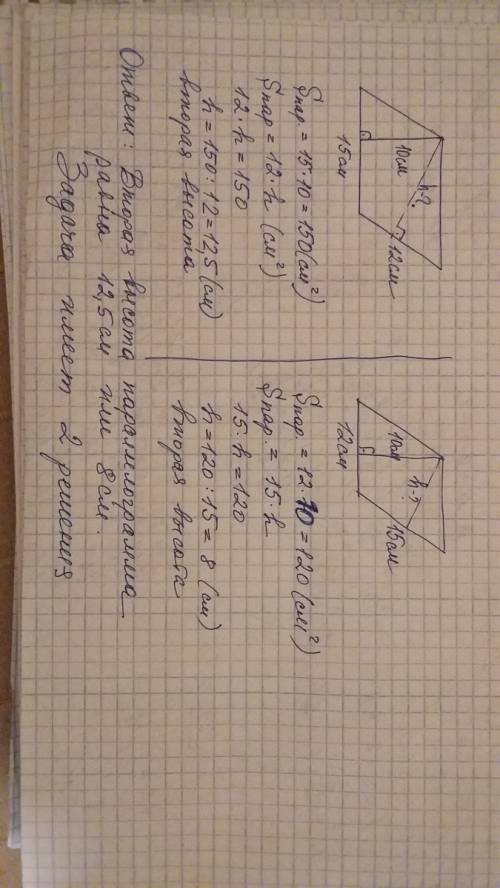 10см
h-?
12см
15см
Sпар. = 15·10 = 150 (см²)
Sпар = 12·h (см²)
12·h = 150
h = 150:12 = 12,5 (см)
вторая высота
10см
h-?
15см
12см
Sпар. = 12·10 = 120 (см²)
Sпар. = 15·h
15·h = 120
h = 120:15 = 8 (см)
вторая высота
Ответ: Вторая высота параллелограмма
равна 12,5 см или 8 см.
Задача имеет 2 решения